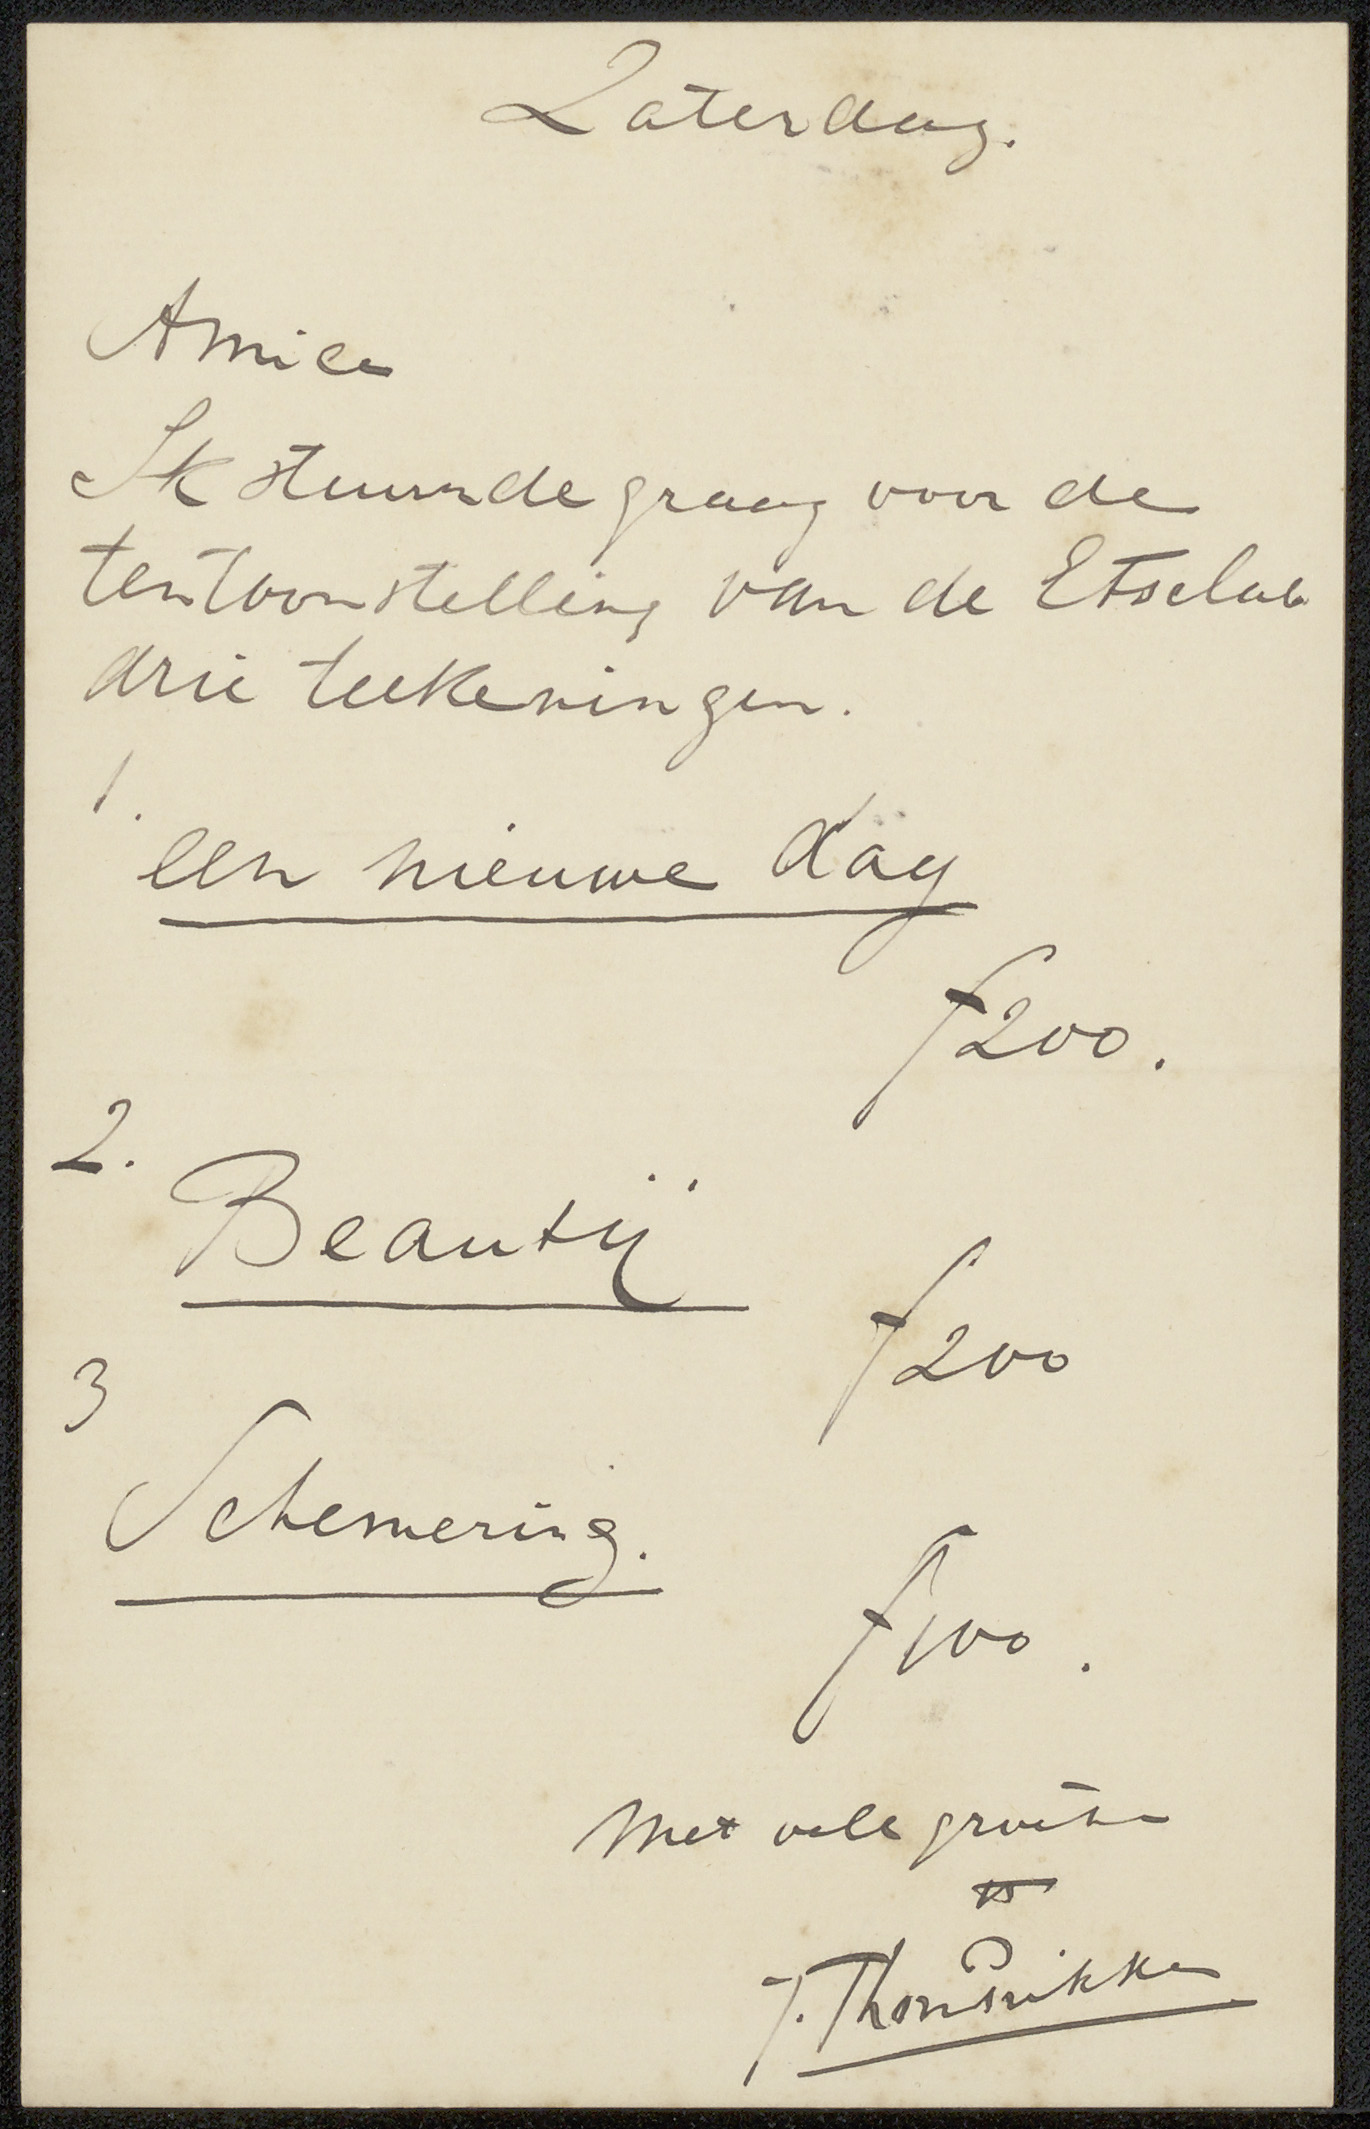 Zaterdag.
Amice
Ik stuurde graag voor de
tentoonstelling van de Etsclub
drie teekeningen.
1.
een nieuwe dag
f200.
2.
Beautij
f200
3
Schemering.
f100.
Met vele groeten
J. Thorn Prikker